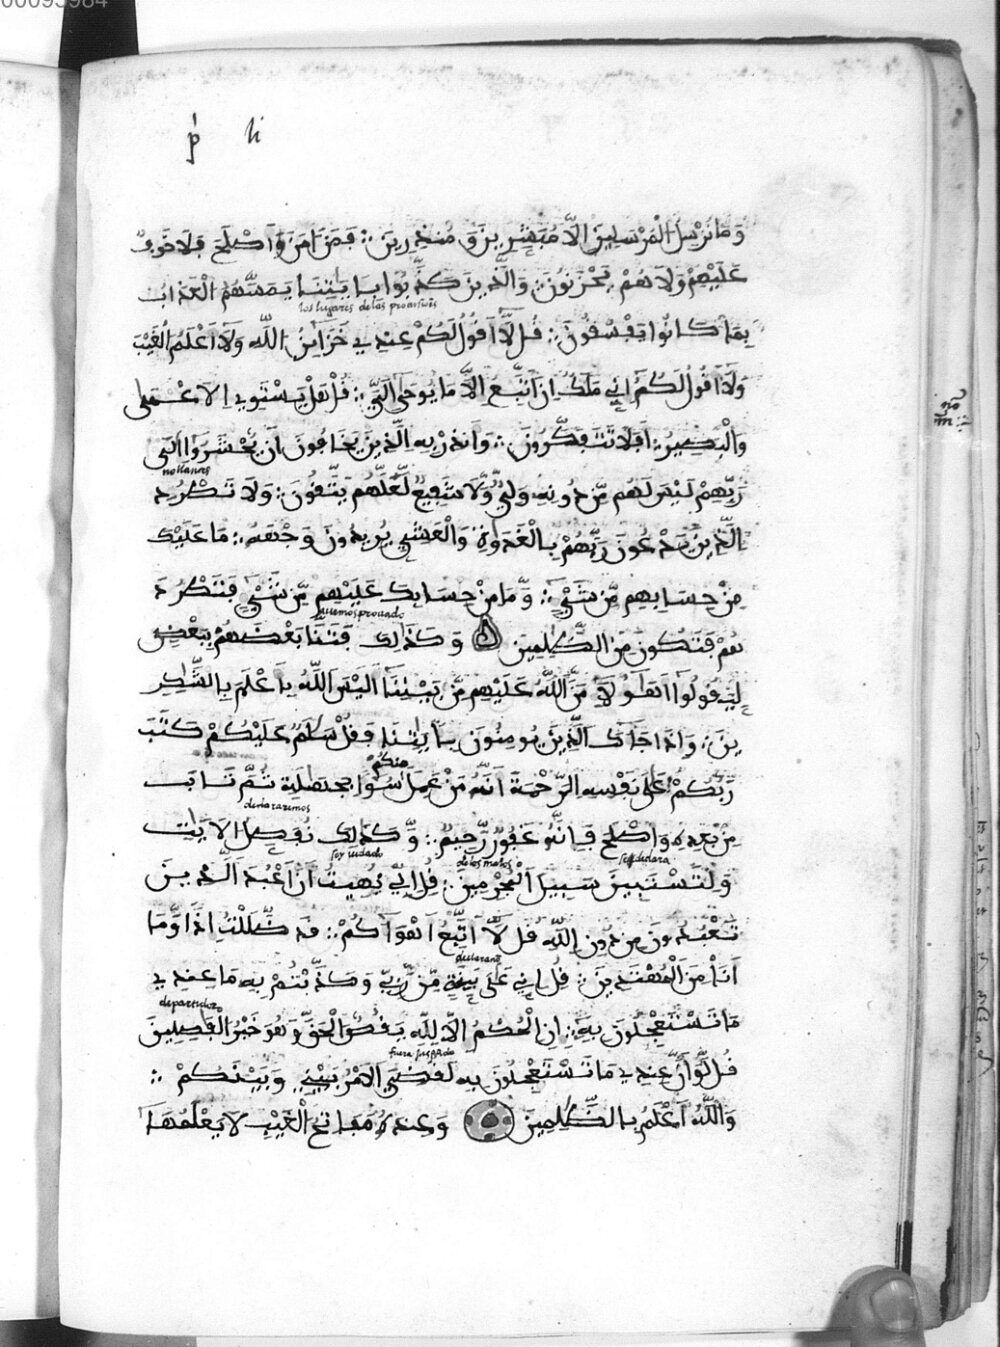 00095984
p li
وَمَا نُرْسِلُ الْمُرْسَلِينَ إِلَّا مُبَشِّرِينَ وَمُنذِرِينَ ؞ فَمَنَ امَنَ وَأَصْلَحَ فَلَا خَوْفٌ
عَلَيْهِمْ وَلَا هُمْ يَحْزَنُونَ ؞ وَالَّذِينَ كَذَّبُوا بِـَٔايَٰتِنَا يَمَسُّهُمُ الْعَذَابُ
los lugares de las
بِمَا كَانُوا يَفْسُقُونَ ؞ قُل لَّا أَقُولُ لَكُمْ عِندِي خَزَآئِنُ اللَّهِ وَلَا أَعْلَمُ الْغَيْبَ
وَلَا أَقُولُ لَكُمُ إِنِّي مَلَكٌ إِنَ اتَّبِعُ إِلَّا مَا يُوحَىٰ إِلَيَّ ؞ قُلْ هَلْ يَسْتَوِي الْأَعْمَىٰ
وَالْبَصِيرُ ؞ أَفَلَا تَتَفَكَّرُونَ ؞ وَأَنذِرْ بِهِ الَّذِينَ يَخَافُونَ أَنْ يُحْشَرُوا إِلَىٰ
no llames
رَبِّهِمْ لَيْسَ لَهُم مِّن دُونِهِ وَلِيٌّ وَلَا شَفِيعٌ لَّعَلَّهُمْ يَتَّقُونَ ؞ وَلَا تَطْرُدِ
الَّذِينَ يَدْعُونَ رَبَّهُمْ بِالْغَدَوٰةِ وَالْعَشِيِّ يُرِيدُونَ وَجْهَهُ ؞ مَا عَلَيْكَ
مِنْ حِسَابِهِم مِّن شَيْءٍ ؞ وَمَا مِنْ حِسَابِكَ عَلَيْهِم مِّن شَيْءٍ فَتَطْرُدَ
auemos prouado
هُمْ فَتَكُونَ مِنَ الظَّٰلِمِينَ وَكَذَٰلِكَ فَتَنَّا بَعْضَهُمْ بِبَعْضٍ
لِيَقُولُوا أَهَٰؤُلَاءِ مَنَّ اللَّهُ عَلَيْهِم مِّن بَيْنِنَا أَلَيْسَ اللَّهُ بِأَعْلَمَ بِالشَّٰكِرِ
ينَ ؞ وَإِذَا جَاءَكَ الَّذِينَ يُومِنُونَ بِـَٔايَٰتِنَا فَقُلْ سَلَٰمٌ عَلَيْكُمْ كَتَبَ
منكم
رَبُّكُمْ عَلَىٰ نَفْسِهِ الرَّحْمَةَ أَنَّهُ مَنْ عَمِلَ سُوءًا بِجَهَٰلَةٍ ثُمَّ تَابَ
declararemos
مِنْ بَعْدِهِ وَأَصْلَحَ فَإِنَّهُ غَفُورٌ رَّحِيمٌ ؞ وَكَذَٰلِكَ نُفَصِّلُ الْآيَٰتِ
soy vedado
de los malos
se declara
وَلِتَسْتَبِينَ سَبِيلَ الْمُجْرِمِينَ ؞ قُلِ إِنِّي نُهِيتُ أَنَ أَعْبُدَ الَّذِينَ
تَعْبُدُونَ مِن دُونِ اللَّهِ قُل لَّا أَتَّبِعُ أَهْوَاءَكُمْ ؞ قَد ضَّلَلْتُ إِذًا وَمَا
أَنَا مِنَ الْمُهْتَدِينَ ؞ قُلِ إِنِّي عَلَىٰ بَيِّنَةٍ مِّن رَّبِّي وَكَذَّبْتُمْ بِهِ مَا عِندِي
departidor
مَا تَسْتَعْجِلُونَ بِهِ ؞ إِنِ الْحُكْمُ إِلَّا لِلَّهِ يَقُصُّ الْحَقَّ وَهُوَ خَيْرُ الْفَٰصِلِينَ
قُل لَّوَ أَنَّ عِندِي مَا تَسْتَعْجِلُونَ بِهِ لَقُضِيَ الْأَمْرُ بَيْنِي وَبَيْنَكُمْ ؞
وَاللَّهُ أَعْلَمُ بِالظَّٰلِمِينَ وَعِندَهُ مَفَاتِحُ الْغَيْبِ لَا يَعْلَمُهَا